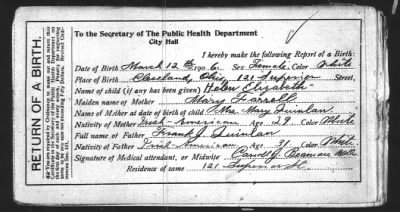 RETURN OF A BIRTH.
To the Secretary of The Public Health Department
City Hall
I hereby make the following Report of a Birth:
Date of Birth March 12th 1906 Sex Female Color White
Place of Birth Cleveland Ohio 121 Superior Street,
Name of child (if any has been given) Helen Elizabeth
Maiden name of Mother Mary Farrell
Name of Mother at date of birth of child Mrs. Mary Quinlan
Nativity of Mother Irish-American Age 29 Color White
Full name of Father Frank J. Quinlan
Nativity of Father Irish-American Age 31 Color White
Signature of Medical attendant, or Midwife
Residence of same 121 Superior St.